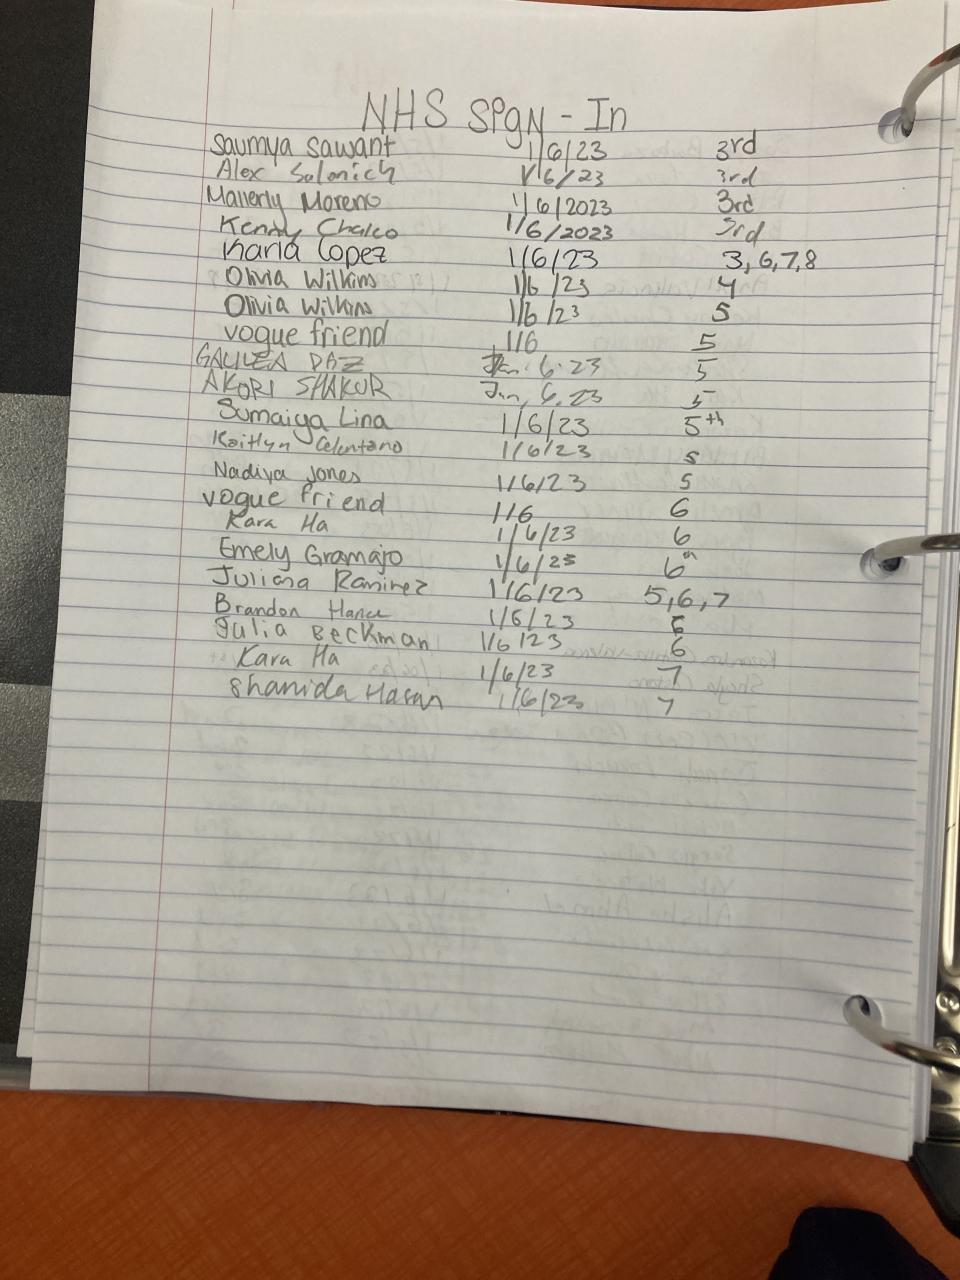 NHS SIgN - In
Saumya Sawant 1/6/23 3rd
Alex Solonich 1/6/23 3rd
Mallerly Moreno 1/6/2023 3rd
Kenny Chalco 1/6/2023 3rd
Karla Lopez 1/6/23 3,6,7,8
Olivia Wilkins 1/6/23 4
Olivia Wilkins 1/6/23 5
vogue friend 1/6 5
GALILEA DAZ Jan. 6. 23 5
AKORI SHAKUR Jan, 6, 23 5
Sumaiya Lina 1/6/23 5th
Kaitlyn Celentano 1/6/23 5
Nadiya Jones 1/6/23 5
vogue friend 1/6 6
Kara Ha 1/6/23 6
Emely Gramajo 1/6/23 6th
Juliana Ramirez 1/6/23 5,6,7
Brandon 1/6/23 6
Julia Beckman 1/6/23 6
Kara Ha 1/6/23 7
Shanida Hasan 1/6/23 7